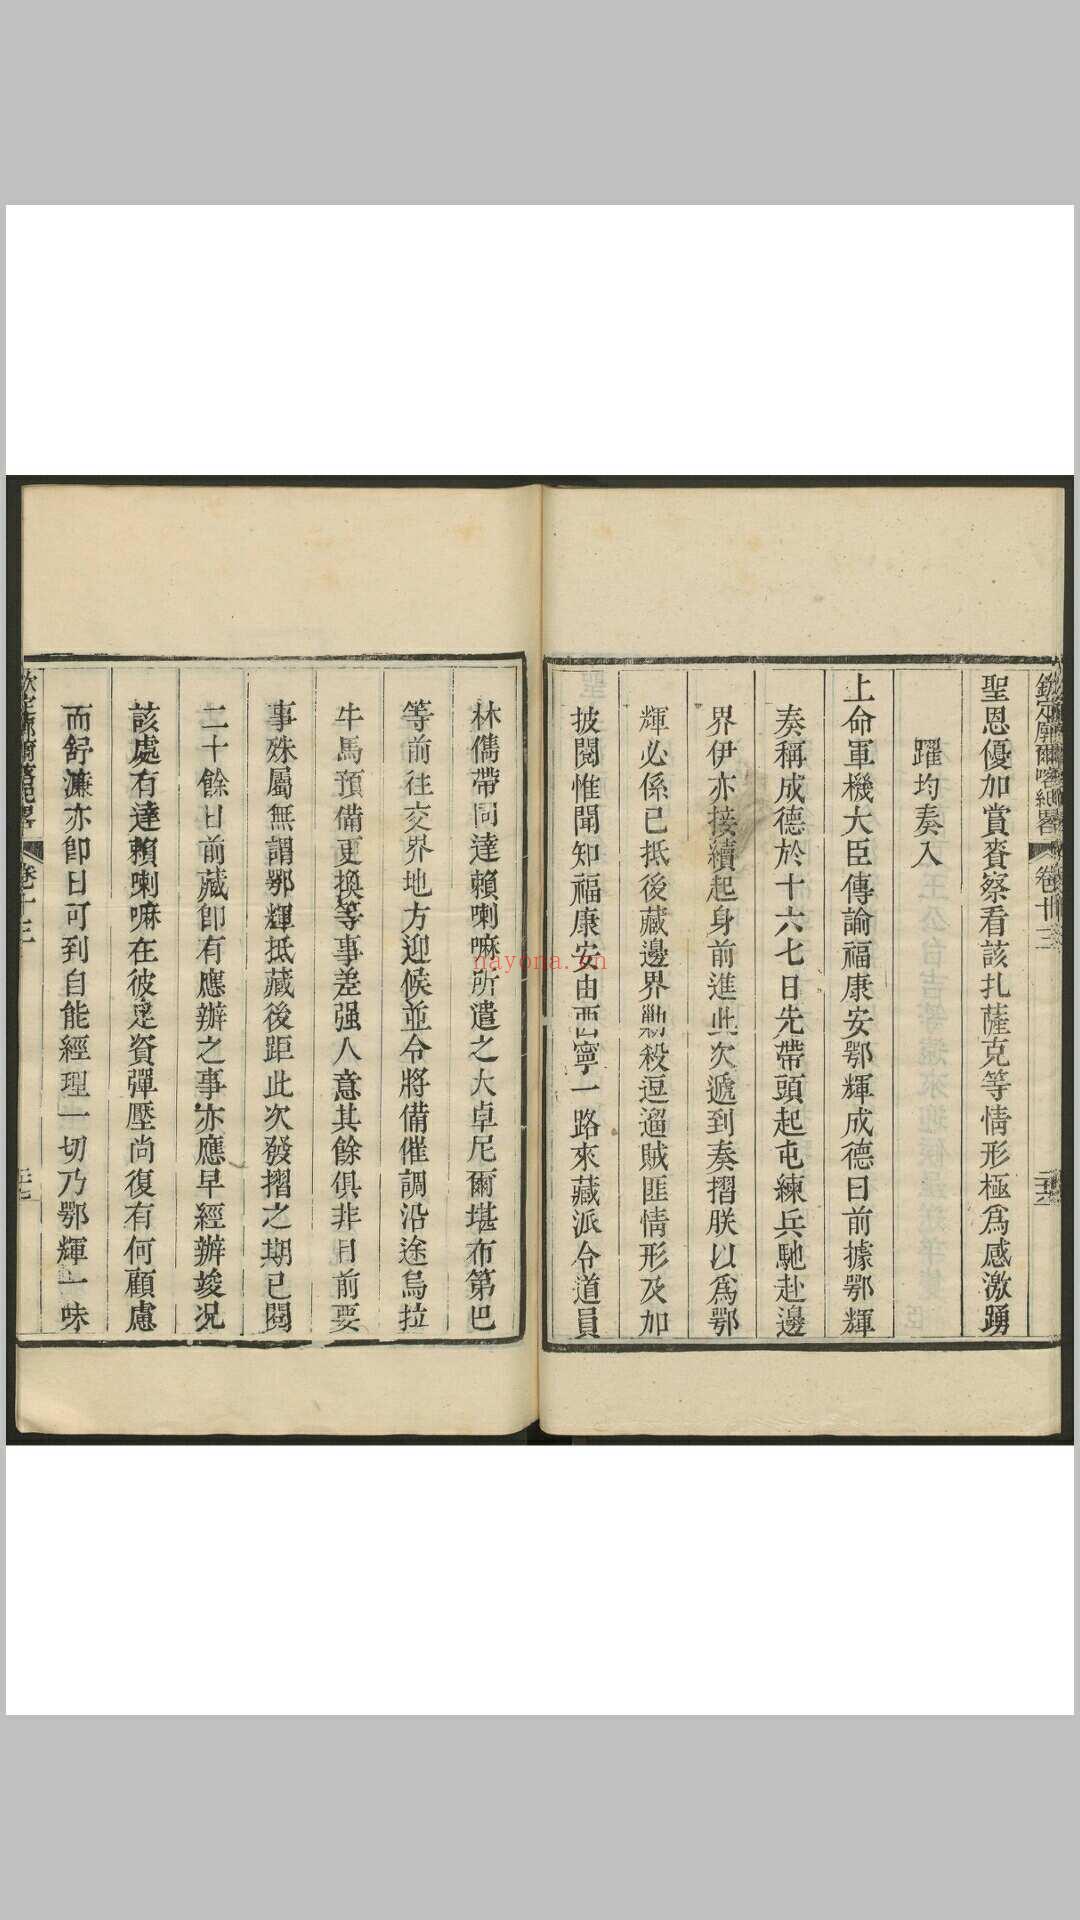 欽定廓爾喀紀畧 卷十三 二十六
聖恩優加賞賚察看該扎薩克等情形極爲感激踴
躍均奏入
上命軍機大臣傳諭福康安鄂輝成德曰前據鄂輝
奏稱成德於十六七日先帶頭起屯練兵馳赴邊
界伊亦接續起身前進此次遞到奏摺朕以爲鄂
輝必係已抵後藏邊界勦殺逗遛賊匪情形及加
披閱惟聞知福康安由西寧一路來藏派令道員
林儁帶同達賴喇嘛所遣之大卓尼爾堪布第巴
等前往交界地方迎候並令將備催調沿途烏拉
牛馬預備更換等事差强人意其餘俱非目前要
事殊屬無謂鄂輝抵藏後距此次發摺之期已閱
二十餘日前藏卽有應辦之事亦應早經辦竣况
該處有達賴喇嘛在彼足資彈壓尚復有何顧慮
而舒濂亦卽日可到自能經理一切乃鄂輝一味
欽定廓爾喀紀畧 卷十三
nayona.cn